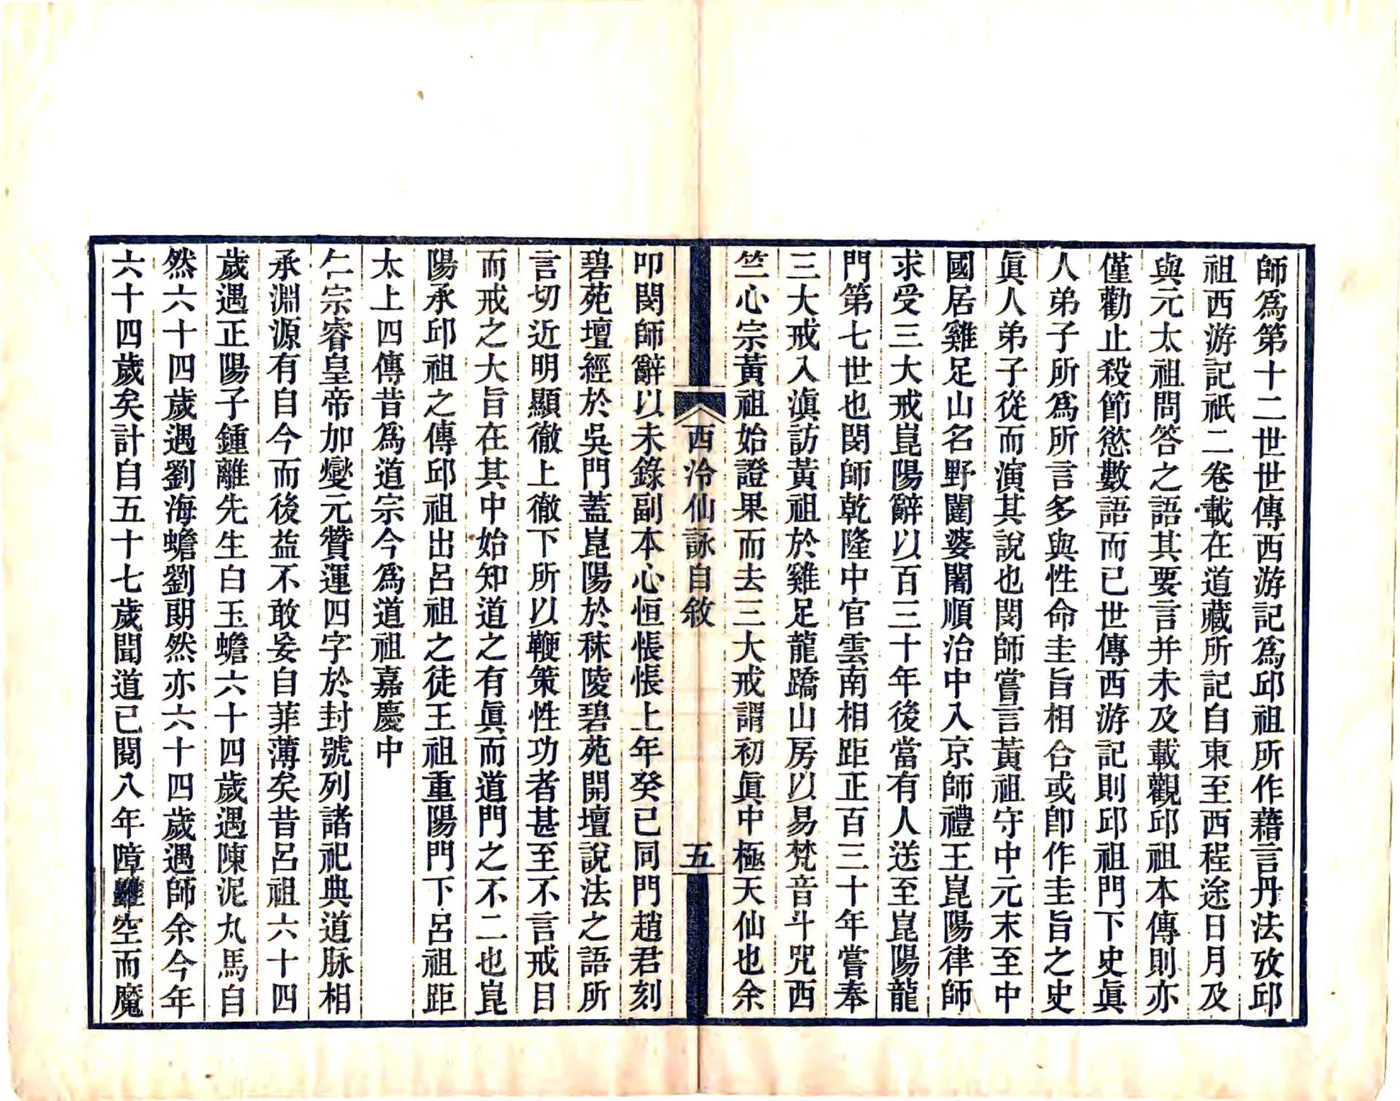 師爲第十二世世傳西游記爲邱祖所作藉言丹法攷邱
祖西游記祇二卷載在道藏所記自東至西程途日月及
與元太祖問答之語其要言并未及載觀邱祖本傳則亦
僅勸止殺節慾數語而已世傳西游記則邱祖門下史眞
人弟子所爲所言多與性命圭旨相合或卽作圭旨之史
眞人弟子從而演其說也閔師嘗言黃祖守中元末至中
國居雞足山名野闥婆闍順治中入京師禮王崑陽律師
求受三大戒崑陽辭以百三十年後當有人送至崑陽龍
門第七世也閔師乾隆中官雲南相距正百三十年嘗奉
三大戒入滇訪黃祖於雞足龍蹻山房以易梵音斗咒西
竺心宗黃祖始證果而去三大戒謂初眞中極天仙也余
西泠仙詠自敘
五
叩閔師辭以未錄副本心恒悵悵上年癸巳同門趙君刻
碧苑壇經於吳門蓋崑陽於秣陵碧苑開壇說法之語所
言切近明顯徹上徹下所以鞭策性功者甚至不言戒目
而戒之大旨在其中始知道之有眞而道門之不二也崑
陽承邱祖之傳邱祖出呂祖之徒王祖重陽門下呂祖距
太上四傳昔爲道宗今爲道祖嘉慶中
仁宗睿皇帝加燮元贊運四字於封號列諸祀典道脉相
承淵源有自今而後益不敢妄自菲薄矣昔呂祖六十四
歲遇正陽子鍾離先生白玉蟾六十四歲遇陳泥丸馬自
然六十四歲遇劉海蟾劉朗然亦六十四歲遇師余今年
六十四歲矣計自五十七歲聞道已閱八年障雖空而魔